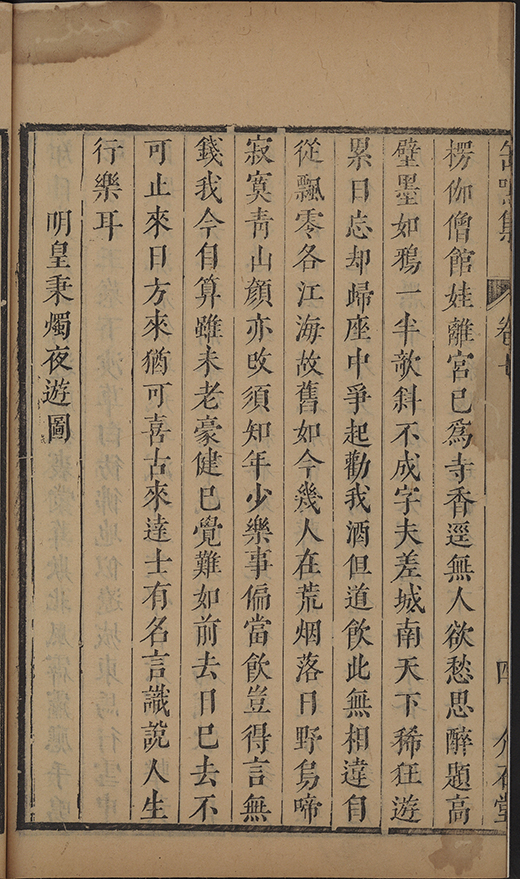 缶鳴集 卷七 四
楞伽僧館娃離宮已爲寺香逕無人欲愁思醉題高
壁墨如鴉一半欹斜不成字夫差城南天下稀狂遊
累日忘却歸座中爭起勸我酒但道飲此無相違自
從飄零各江海故舊如今幾人在荒烟落日野烏啼
寂寞青山顏亦改須知年少樂事偏當飲豈得言無
錢我今自算雖未老豪健已覺難如前去日已去不
可止來日方來猶可喜古來達士有名言識說人生
行樂耳
明皇秉燭夜遊圖